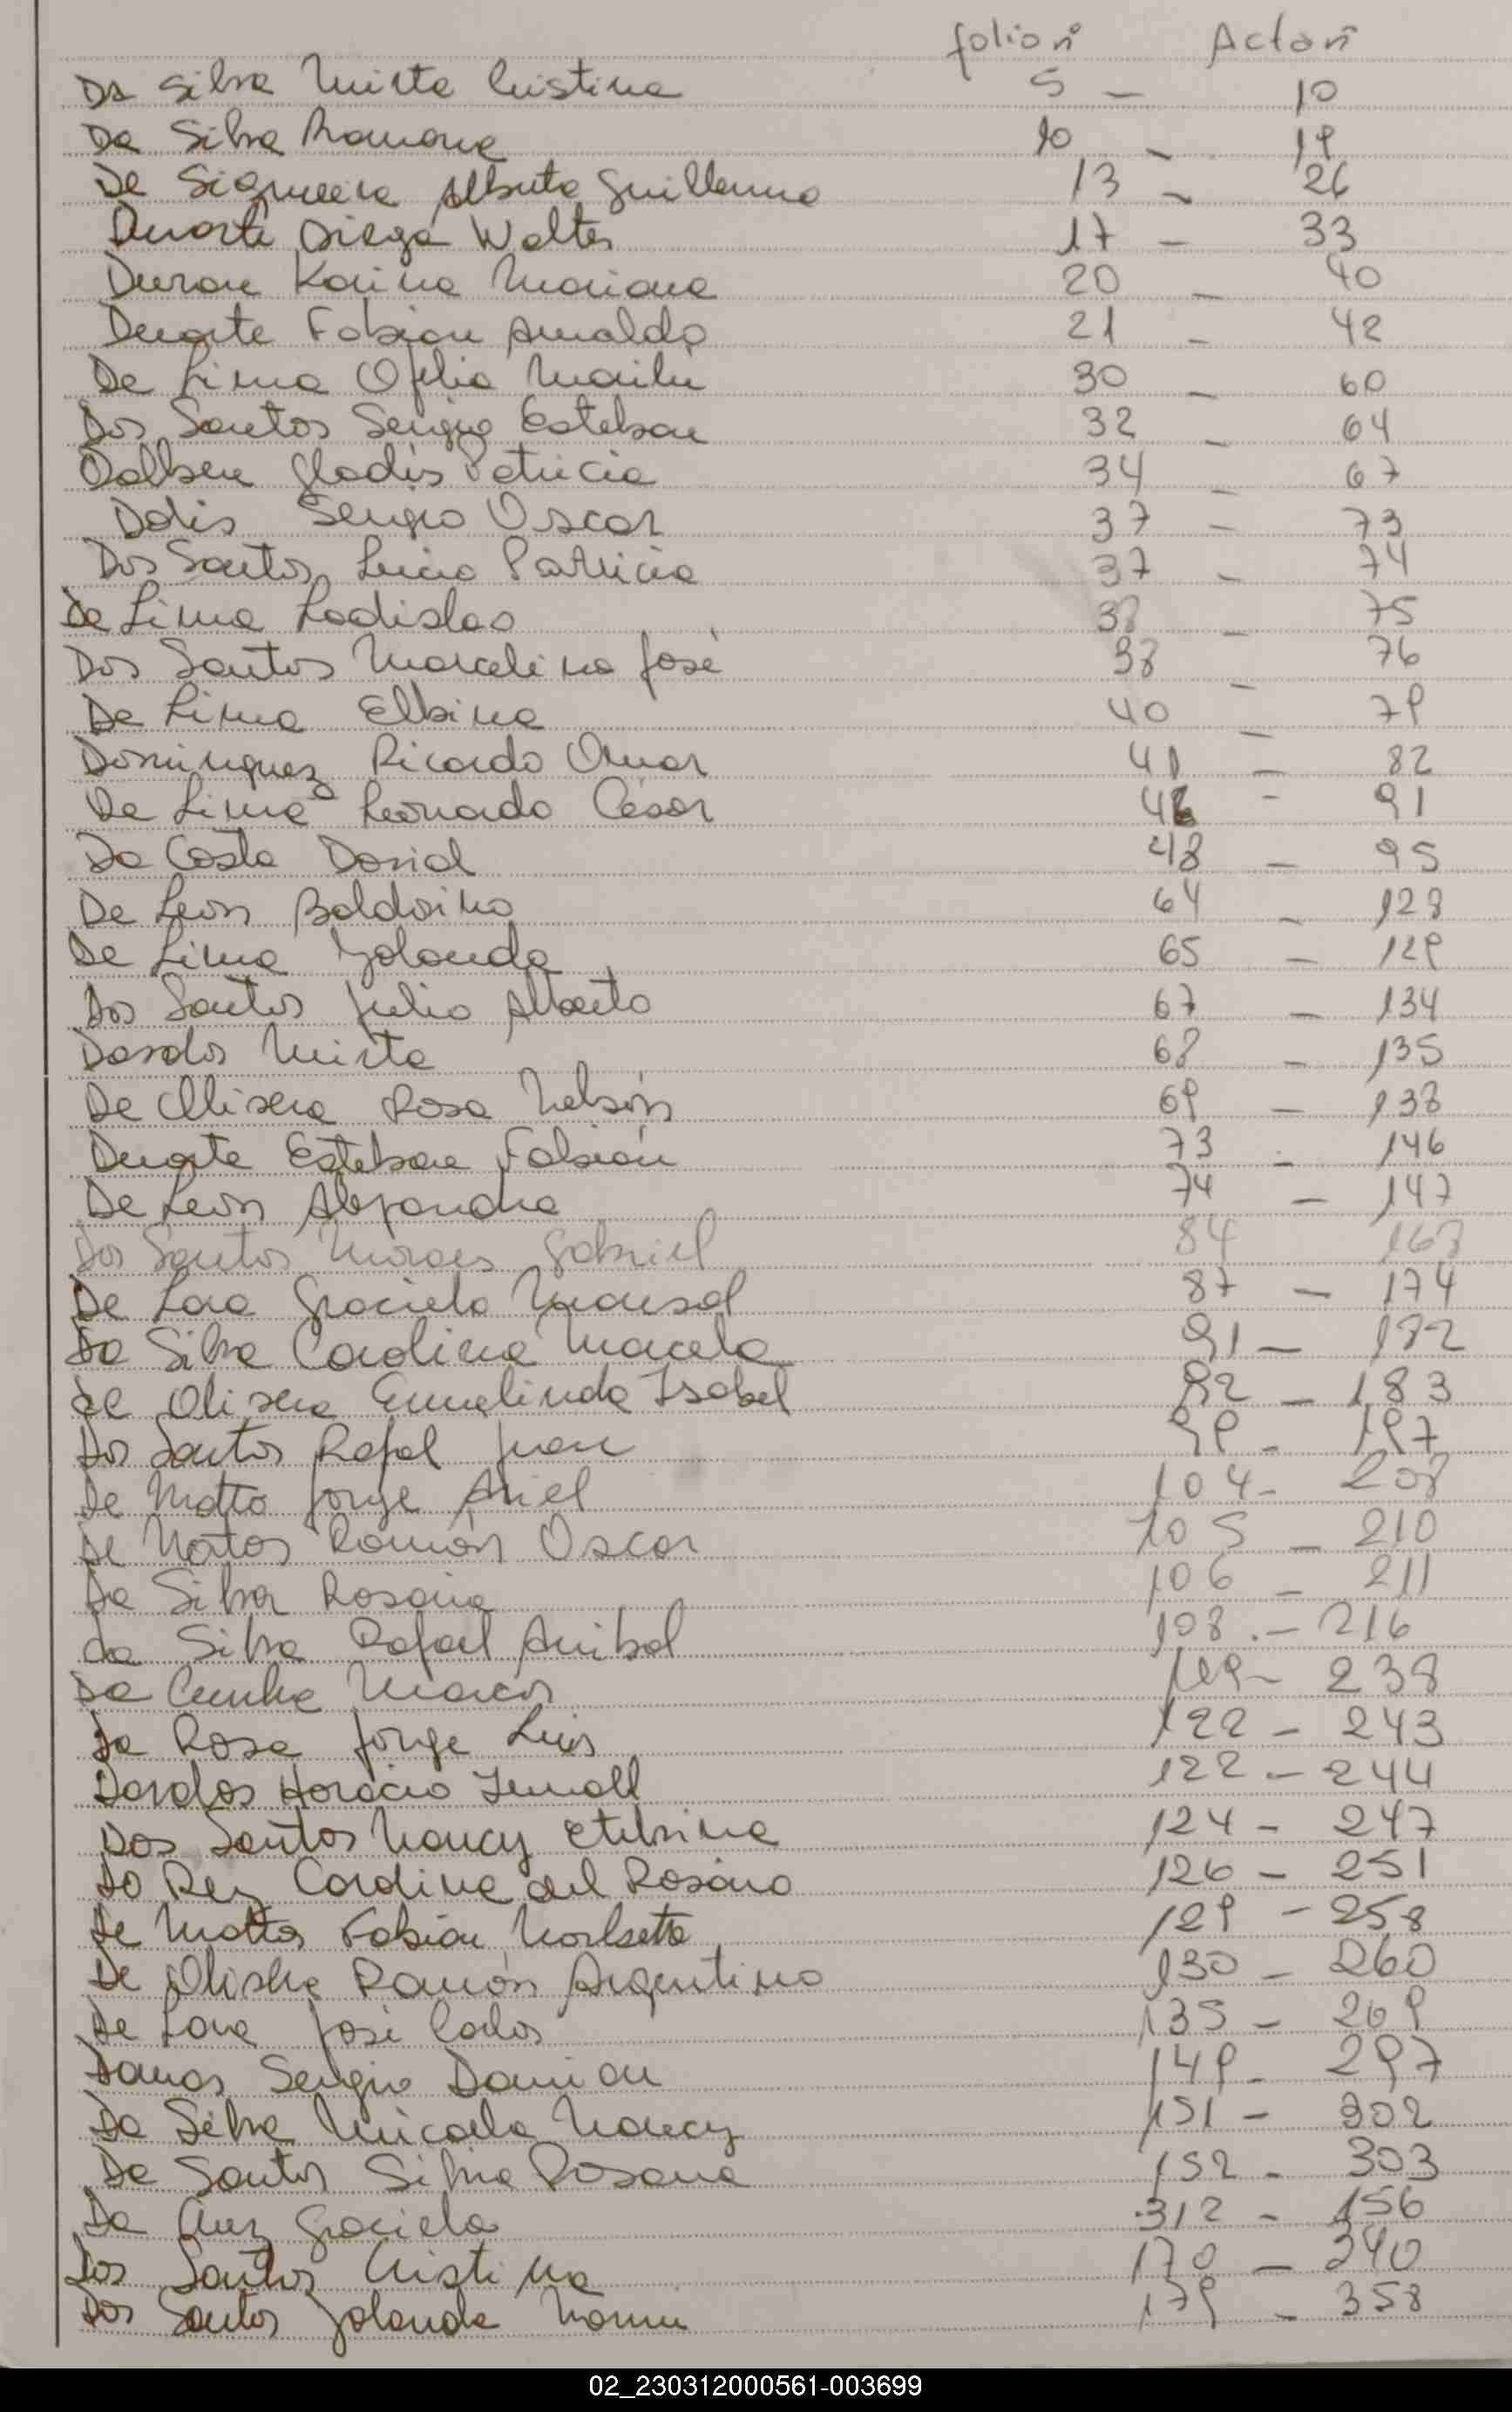 folio nº Acta nº
Da Silva Mirta Cristina 5 - 10
Da Silva Ramona 10 - 19
De Siqueira Alberto Guillermo 13 - 26
Duarte Diego Walter 17 - 33
Duran Karina Mariana 20 - 40
Duarte Fabian Arnaldo 21 - 42
De Lima Ofelia Marilu 30 - 60
Dos Santos Sergio Esteban 32 - 64
Dalben Gladis Patricia 34 - 67
Dolis Sergio Oscar 37 - 73
Dos Santos Lucia Patricia 37 - 74
De Lima Ladislao 38 - 75
Dos Santos Marcelino José 38 - 76
De Lima Elbina 40 - 79
Dominguez Ricardo Omar 41 - 82
De Lima Leonardo César 46 - 91
Da Costa Daniel 48 - 95
De Leon Baldoino 64 - 128
De Lima Yolanda 65 - 129
Dos Santos Julio Alberto 67 - 134
Dardos Mirta 68 - 135
De Olivera Rosa Nelson 69 - 138
Duarte Esteban Fabián 73 - 146
De Leon Alejandra 74 - 147
Dos Santos Moraes Gabriel 84 168
De Lara Graciela Marisol 87 - 174
Da Silva Carolina Marcela 91 - 182
de Olivera Ermelinda Isabel 92 - 183
Dos Santos Rafael Juan 99 - 197
De Matto Jorge Ariel 104 - 208
De Mattos Ramón Oscar 105 - 210
Da Silva Rosana 106 - 211
da Silva Rafael Anibal 108 .- 216
Da Cunha Marcos 119 - 238
Da Rosa Jorge Luis 122 - 243
Dardos Horacio 122 - 244
Dos Santos Nancy Etelvina 124 - 247
Do Rey Carolina del Rosario 126 - 251
De Mattos Fabian Norberto 129 - 258
De Olivera Ramón Argentino 130 - 260
De Lara José Carlos 135 - 269
Damas Sergio Damian 149 - 297
Da Silva Micaela Nancy 151 - 302
Da Santos Silvia Rosana 152 - 303
Da Cruz Graciela 312 - 156
Dos Santos Cristina 170 - 340
Dos Santos Yolanda Noemi 179 - 358
02_230312000561-003699